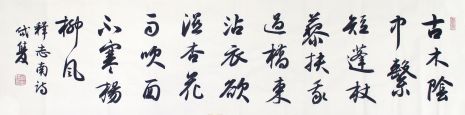 古木陰
中繫
短蓬杖
藜扶我
過橋東
沾衣欲
濕杏花
雨吹面
不寒楊
柳風
釋志南詩